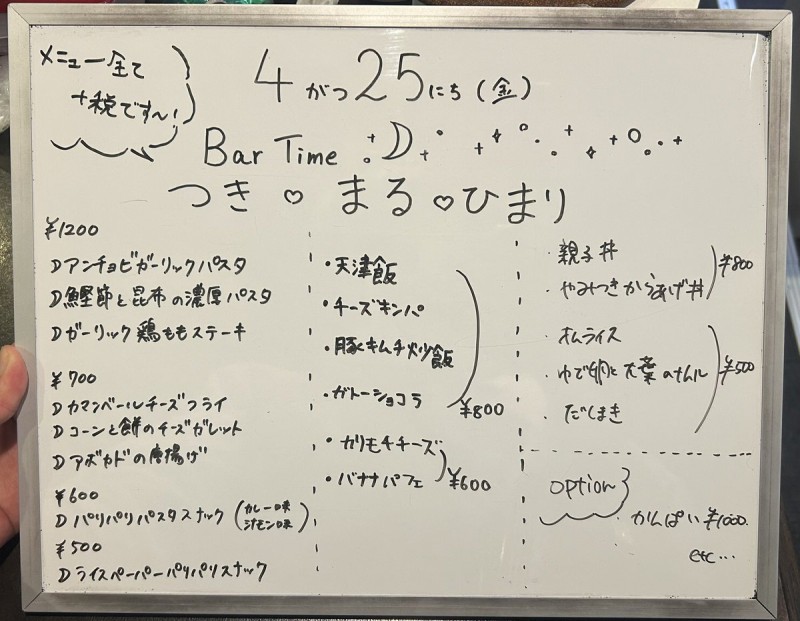 メニュー全て
+税です〜!
4がつ25にち(金)
Bar Time
つき♡まる♡ひまり
¥1200
アンチョビガーリックパスタ
鰹節と昆布の濃厚パスタ
ガーリック鶏ももステーキ
¥700
カマンベールチーズフライ
コーンと餅のチーズガレット
アボカドの唐揚げ
¥600
パリパリパスタスナック(カレー味
コンソメ味)
¥500
ライスペーパーパリパリスナック
・天津飯
・チーズキンパ
・豚キムチ炒飯
・ガトーショコラ
¥800
・カリモチチーズ
・バナナパフェ
¥600
・親子丼
・やみつきからあげ丼
¥800
・オムライス
・ゆで卵と大葉のナムル
・だしまき
¥500
option
・かんぱい ¥1000.
etc…